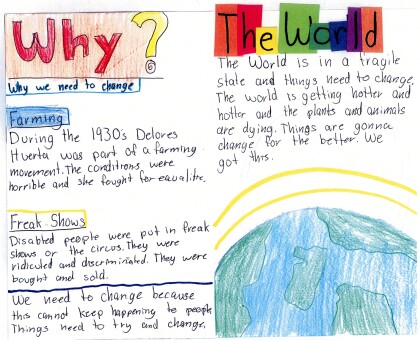 Why?
Why we need to change
Farming
During the 1930's Delores
Huerta was part of a farming
movement. The conditions were
horrible and she fought for equalite.
Freak Shows
Disabled people were put in freak
shows or the circus. They were
ridiculed and discriminated. They were
bought and sold.
We need to change because
this cannot keep happening to people
Things need to try and change.
The World
The World is in a fragile
state and things need to change.
The world is getting hotter and
hotter and the plants and animals
are dying. Things are gonna
change for the better. We
got this.